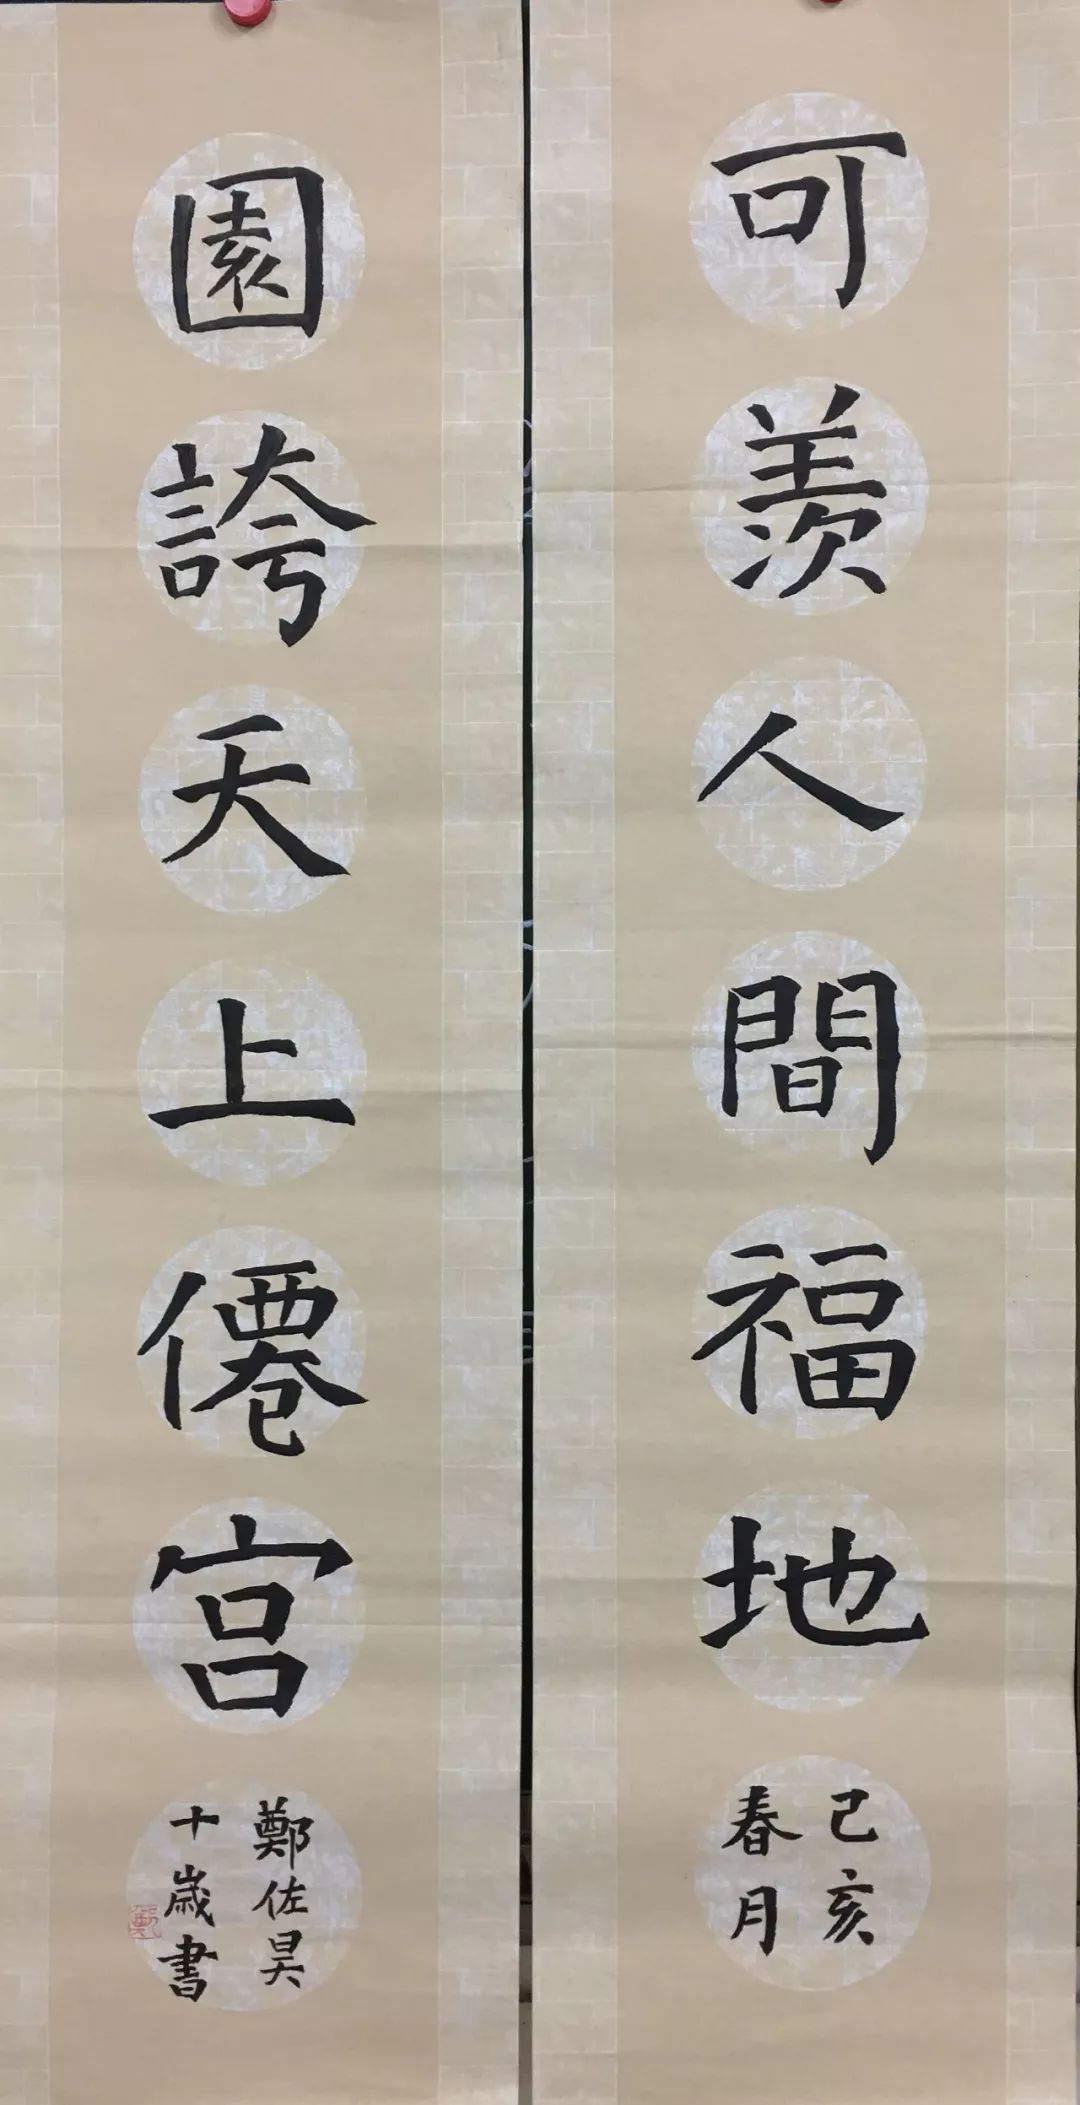 可羨人間福地
己亥
春月
園誇天上僊宮
鄭佐昊
十歲書
鄭